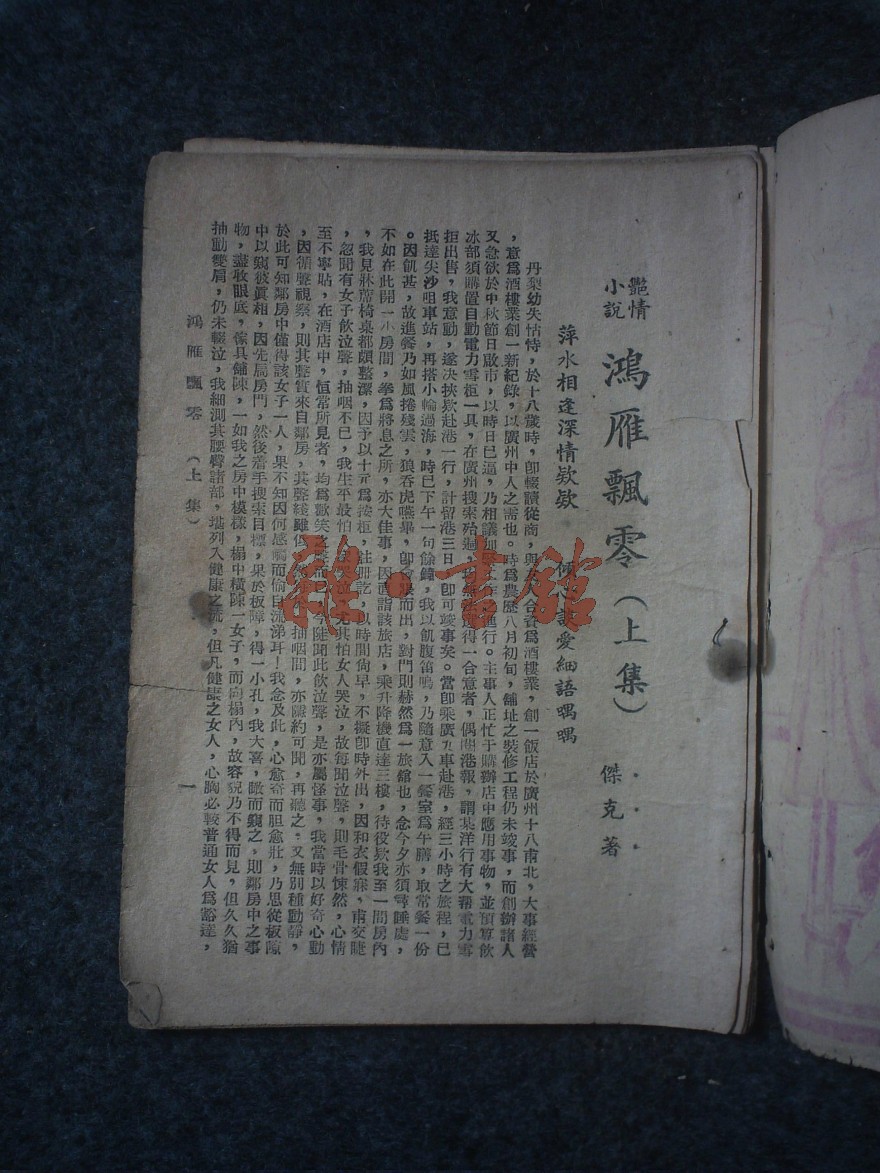 艷情小說 鴻雁飄零（上集） 傑克著
萍水相逢深情欵欵 談愛細語喁喁
丹梨幼失怙恃，於十八歲時，卽輟讀從商，與 合者爲酒樓業，創一飯店於廣州十八甫北，大事經營
，意爲酒樓業創一新紀錄，以廣州中人之需也。時爲農歷八月初旬，舖址之裝修工程仍未竣事，而創辦諸人
又急欲於中秋節日啟市，以時日已逼，乃相議 進行。主事人正忙于購辦店中應用事物，並預算飲
冰部須購置自動電力雪柜一具，在廣州搜索殆遍， 得一合意者，偶閱港報，謂某洋行有大帮電力雪
柜出售，我意動，遂决挾欵赴港一行，計留港三日，卽可竣事矣。當卽乘廣九車赴港，經三小時之旅程，已
抵達尖沙咀車站，再搭小輪過海，時已下午一句餘鐘，我以飢腹笛鳴，乃隨意入一餐室爲午膳，取常餐一份
。因飢甚，故進餐乃如風捲殘雲，狼吞虎嚥畢，卽 而出，對門則赫然爲一旅舘也，念今夕亦須尋睡處，
不如在此開一小房間，拳爲將息之所，亦大佳事，因直詣該旅店，乘升降機直達三樓，待役欵我至一間房內
，我見牀蓆椅桌都頗整潔，因予以十元爲按柜，註册訖， 以時間尙早，不擬卽時外出，因和衣假寐，甫交睫
，忽聞有女子飲泣聲，抽咽不已，我生平最怕 哭泣，尤其怕女人哭泣，故每聞泣聲，則毛骨悚然，心情
至不寧貼，在酒店中，恒常所見者，均爲歡笑之聲 今陡聞此飲泣聲，是亦屬怪事，我當時以好奇心動
，因循聲視察，則其聲實來自鄰房，其聲綫雖低， 抽咽間，亦隱約可聞，再聽之，又無別種動靜，
於此可知鄰房中僅得該女子一人，果不知因何感觸而偷自流涕耳！我念及此，心愈奇而胆愈壯，乃思從板隙
中以窺彼眞相，因先扃房門，然後着手搜索目標，果於板障，得一小孔，我大喜，瞰而窺之，則鄰房中之事
物，盡收眼底，傢具舖陳，一如我之房中模樣，榻中橫陳一女子，而向榻內，故容貌乃不得而見，但久久猶
抽動雙肩，仍未輟泣，我細測其腰臀諸部，堪列入健康之流，但凡健康之女人，心胸必較普通女人爲豁達，
鴻雁飄零（上集） 一
雜·書館